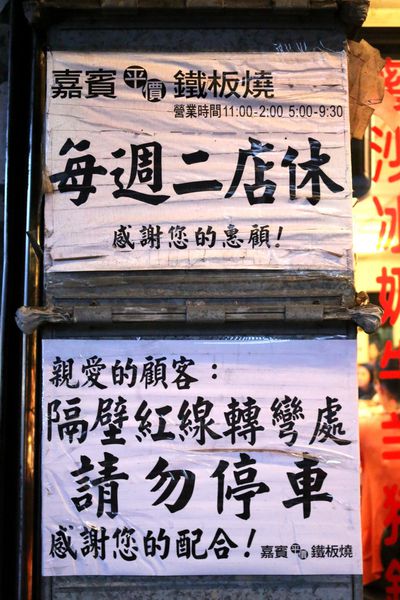 嘉賓平價鐵板燒
營業時間11:00-2:00 5:00-9:30
每週二店休
感謝您的惠顧!
親愛的顧客：
隔壁紅線轉彎處
請勿停車
感謝您的配合!
嘉賓平價鐵板燒
沙冰奶